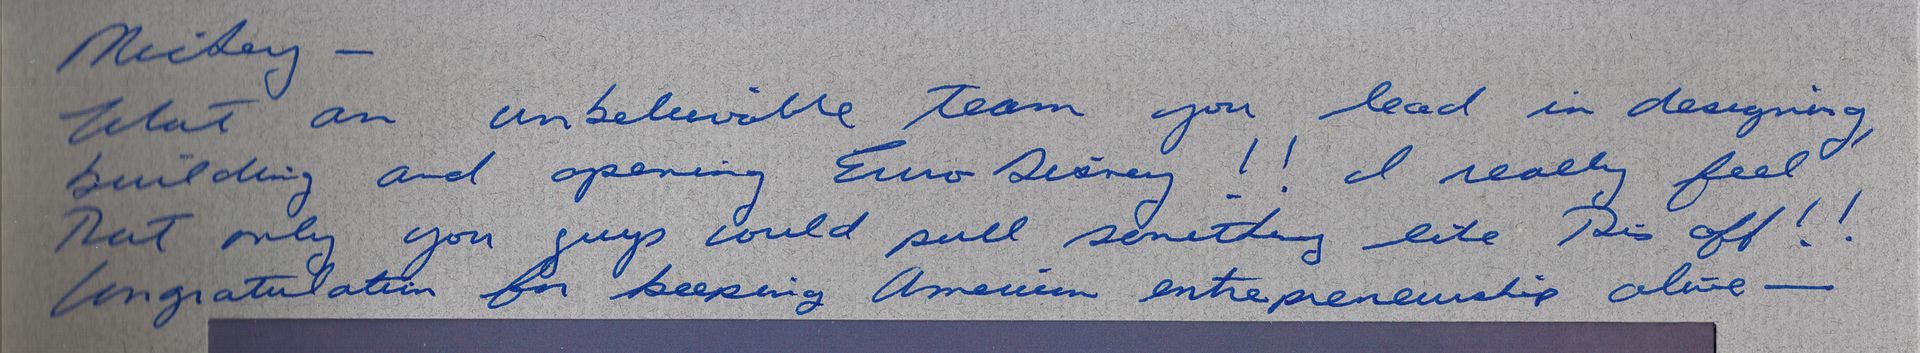 Mickey —
What an unbelievable team you lead in designing,
building and opening Euro Disney!! I really feel
That only you guys could pull something like This off!!
Congratulation for keeping American entrepreneurship alive —